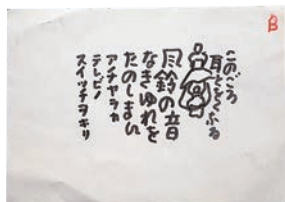 B
このごろ
耳をくすぐる
風鈴の音
なきゆれを
たのしまん
アノチャラカ
テレビノ
スイッチヲキリ